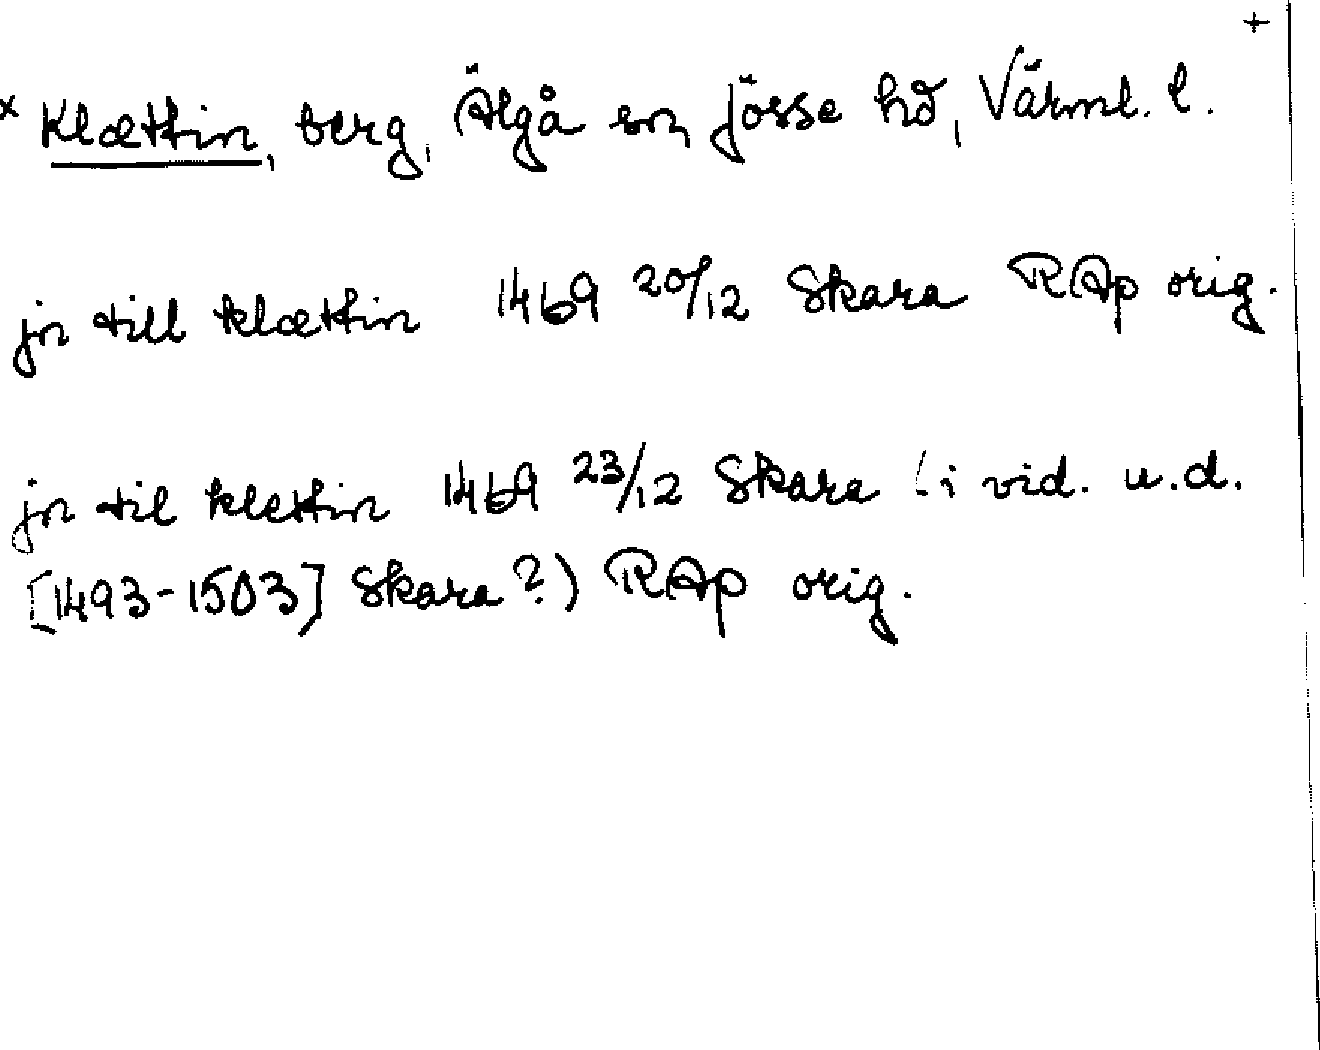 +
x Klættin, berg, Älgå sn, Jösse hd, Värml. l.
jn till klættin 1469 20/12 Skara RAp orig.
jn til klettin 1469 23/12 Skara (i vid. u.d.
[1493-1503] Skara?) RAp orig.